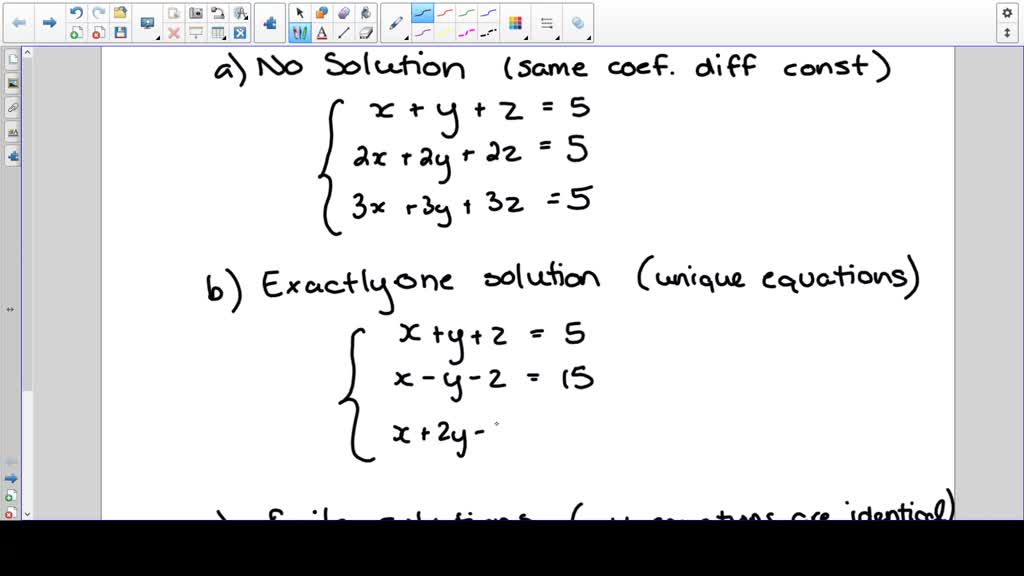 a) No Solution (same coef. diff const)
x + y + z = 5
2x + 2y + 2z = 5
3x + 3y + 3z = 5
b) Exactly one solution (unique equations)
x + y + z = 5
x - y - z = 15
x + 2y -
solutions ( equations are identical)